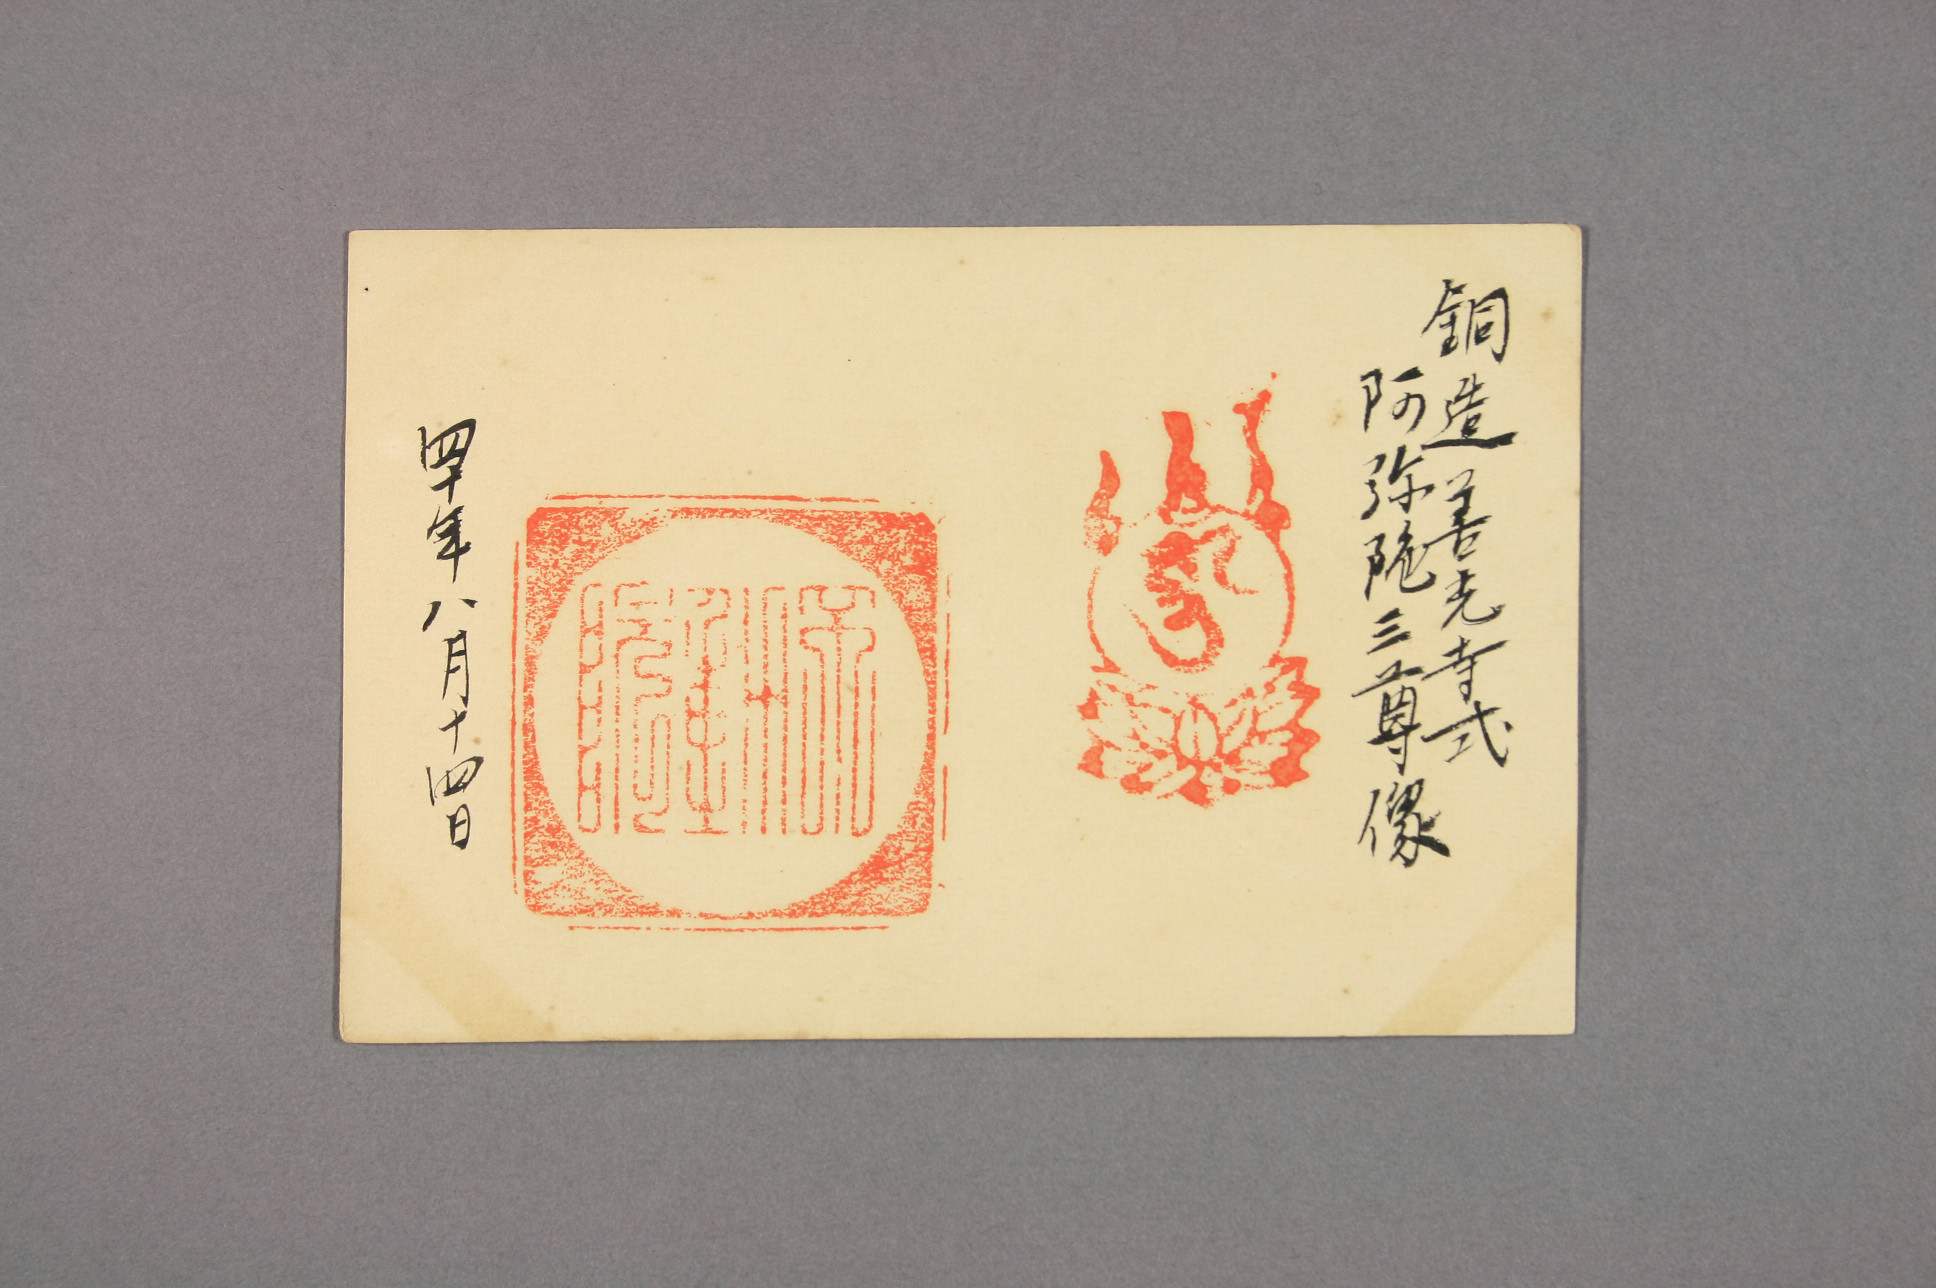 銅造善光寺式
阿弥陀三尊像
四十年八月十四日